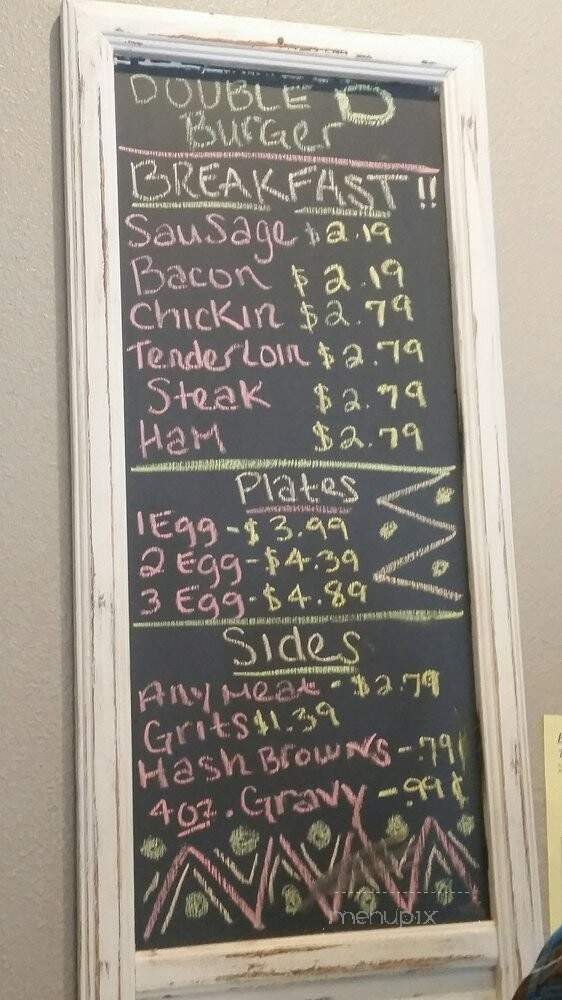 DOUBLE D
Burger
BREAKFAST!!
Sausage $2.19
Bacon $2.19
Chickin $2.79
Tenderloin $2.79
Steak $2.79
Ham $2.79
Plates
1 Egg - $3.99
2 Egg - $4.39
3 Egg - $4.89
Sides
Any Meat - $2.79
Grits $1.39
Hash Browns - .79¢
4 oz. Gravy - .99¢
menupix